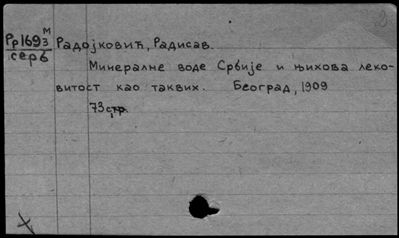 Рр1693 М
серб
Радојковић, Радисав.
Минералне воде Србије и њихова леко-
витост као таквих. Београд, 1909
73стр.